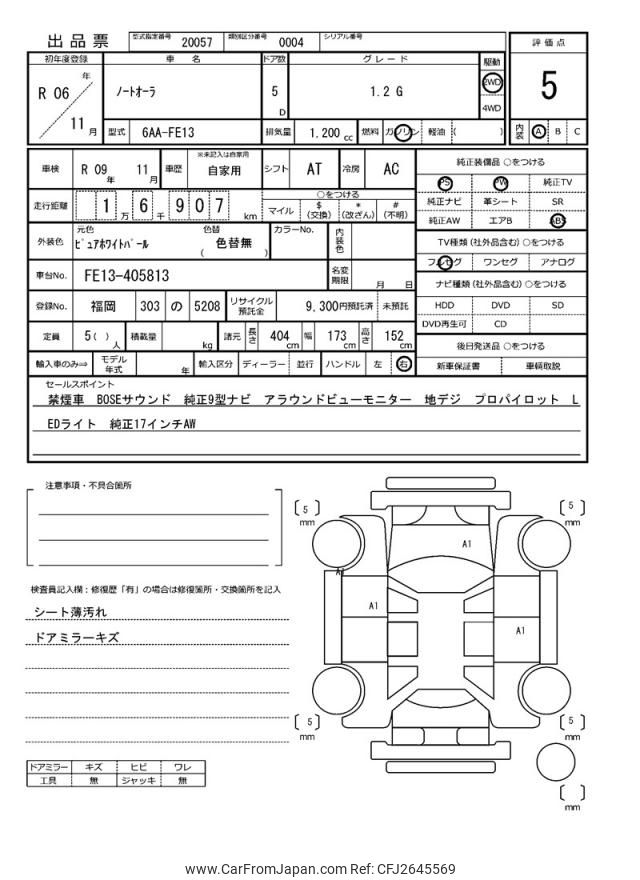 出品票
型式指定番号 20057 類別区分番号 0004 シリアル番号
初年度登録 車 名 ドア数 グレード 駆動
評価点
R 06 年 11 月
ノートオーラ 5 D 1.2 G 2WD 4WD
5
型式 6AA-FE13 排気量 1.200 cc 燃料 ガソリン 軽油 ( )
内装 A B C
車検 R 09 年 11 月 車歴 ※未記入は自家用 自家用 シフト AT 冷房 AC
走行距離 1 万 6 千 9 0 7 km
○をつける
マイル $ (交換) * (改ざん) # (不明)
外装色 元色 ピュアホワイトパール 色替 ( 色替無 ) カラーNo. 内装色
車台No. FE13-405813 名変期限 月 日
登録No. 福岡 303 の 5208 リサイクル預託金 9,300円預託済 未預託
定員 5( ) 人 積載量 kg 諸元 長さ 404 cm 幅 173 cm 高さ 152 cm
輸入車のみ⇒ モデル年式 年 輸入区分 ディーラー 並行 ハンドル 左 右
純正装備品 ○をつける
PS PW 純正TV
純正ナビ 革シート SR
純正AW エアB ABS
TV種類 (社外品含む) ○をつける
フルセグ ワンセグ アナログ
ナビ種類 (社外品含む) ○をつける
HDD DVD SD
DVD再生可 CD
後日発送品 ○をつける
新車保証書 車輌取説
セールスポイント
禁煙車 BOSEサウンド 純正9型ナビ アラウンドビューモニター 地デジ プロパイロット L
EDライト 純正17インチAW
注意事項・不具合箇所
検査員記入欄：修復歴「有」の場合は修復箇所・交換箇所を記入
シート薄汚れ
ドアミラーキズ
ドアミラー キズ ヒビ ワレ
工具 無 ジャッキ 無
[ 5 ] mm
[ 5 ] mm
A1
A1
A1
A1
[ 5 ] mm
[ 5 ] mm
[ ] mm
www.CarFromJapan.com Ref: CFJ2645569